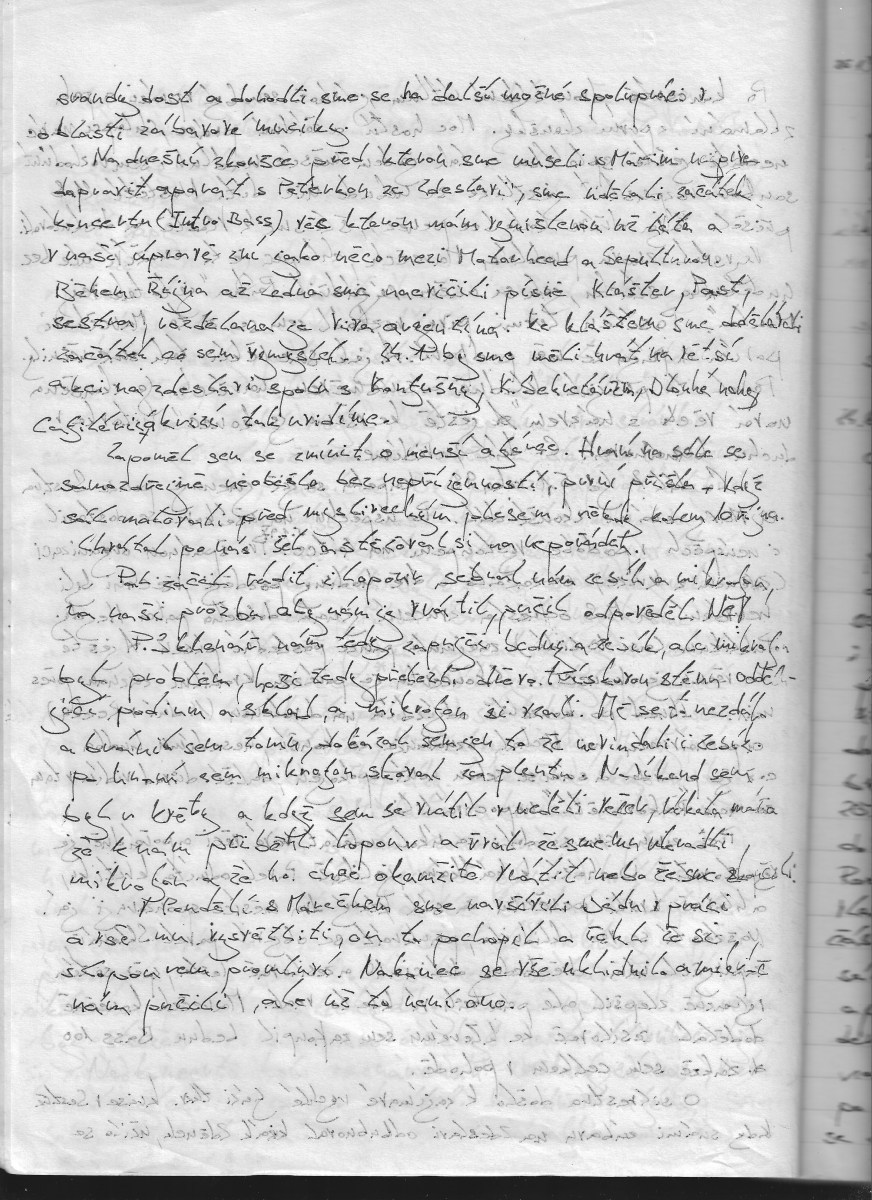 srandy dost a dohodli sme se na další možné spolupráci v
oblasti zábavové muziky.
Na dnešní zkoušce před kterou sme museli s Márim nejprve
dopravit aparát s Peterkou ze Zdeslavi, sme udělali začátek
koncertu (Intro Bass), věc kterou mám vymišlenou už léta a
v naší úpravě zní jako něco mezi Motorhead a Sepulturou.
Během Října až ledna sme nacvičili písně Klášter, Past,
sestra, vzdělana ze víra a argentina. Ke klášteru sme dodělávali
začátek, co sem vymyslel. 24.1 by sme měli hrát na větší
akci na zdeslavi spolu s Konfušný, K. Sekvetářem, Dlouhé nohy,
a krizí tak uvidíme.
Zapoměl sem se zmínit o menší aféřce. Hraní na sále se
samozdřejmě neobešlo bez nepříjemností, první přišla, když
sál malovali před mysliveckým plesem někdy kolem října.
Chrastal po nás šel a stěžoval si na nepořádek.
Pak začal řádit i Kaponv, sebral nám zesík a mikrofon,
na naši prozbu aby nám je vrátil, pučil odpověděl NE!
P. Sklenář nám tedy zapujčil bedny a zesík, ale mikrofon
byl problém, hoši tedy přelezli dřevotřískovou stěnu odděl-
ující podium a sklad, a mikrofon si vzali. Mě se to nezdálo
a bránil sem tomu, dokázal sem jen to že nevindali i zesík.
po hraní sem mikrofon skoval za plentu. Na víkend sem
byl u Květy a když sem se vrátil v neděli večer, říkala máma
že k nám přiběhl Koponv a řval že sme mu ukradli
mikrofon a že ho chce okamžitě vrátit nebo že sme skončili.
V Pondělí s Marečkem sme navšťívili Vádu v práci
a vše mu vysvětlili, on to pochopil a řekl že si
s koponvem promluví. Nakonec se vše uklidnilo a mikráč
nám pučili, ale už to není ono.